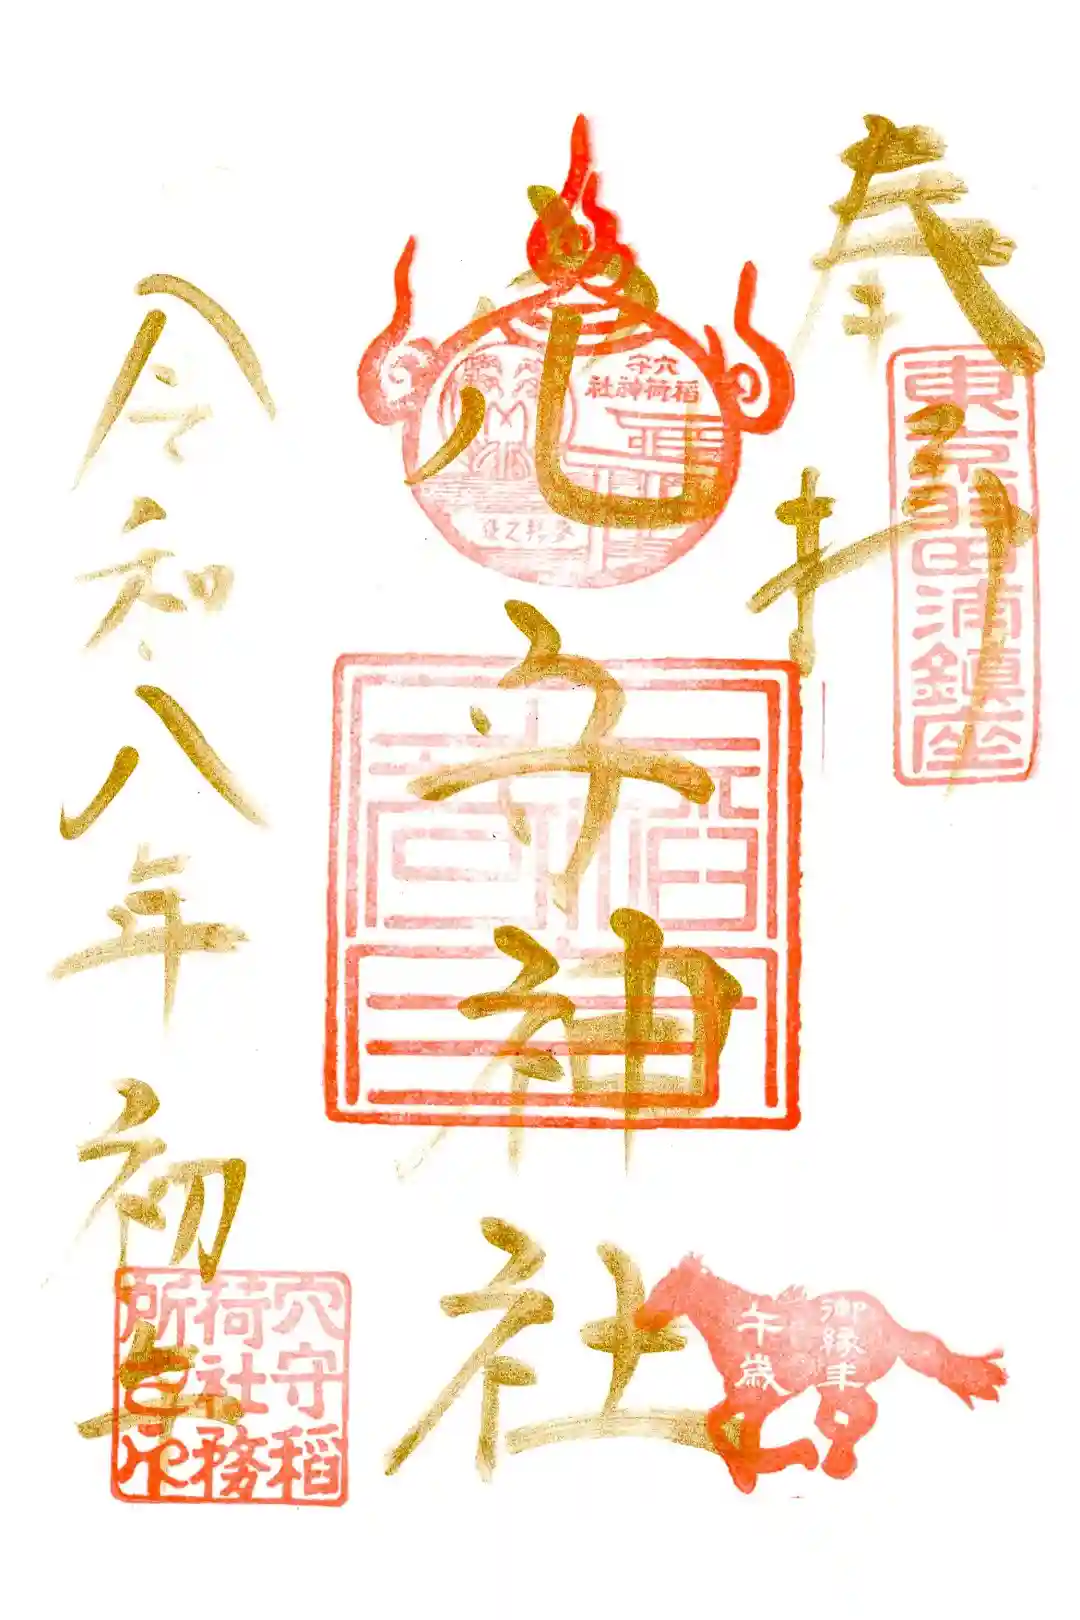 奉拝
東京羽田浦鎮座
穴守
稲荷神社
穴守神社
御縁年
午歳
令和八年初午
穴守稲
荷社務
所之印